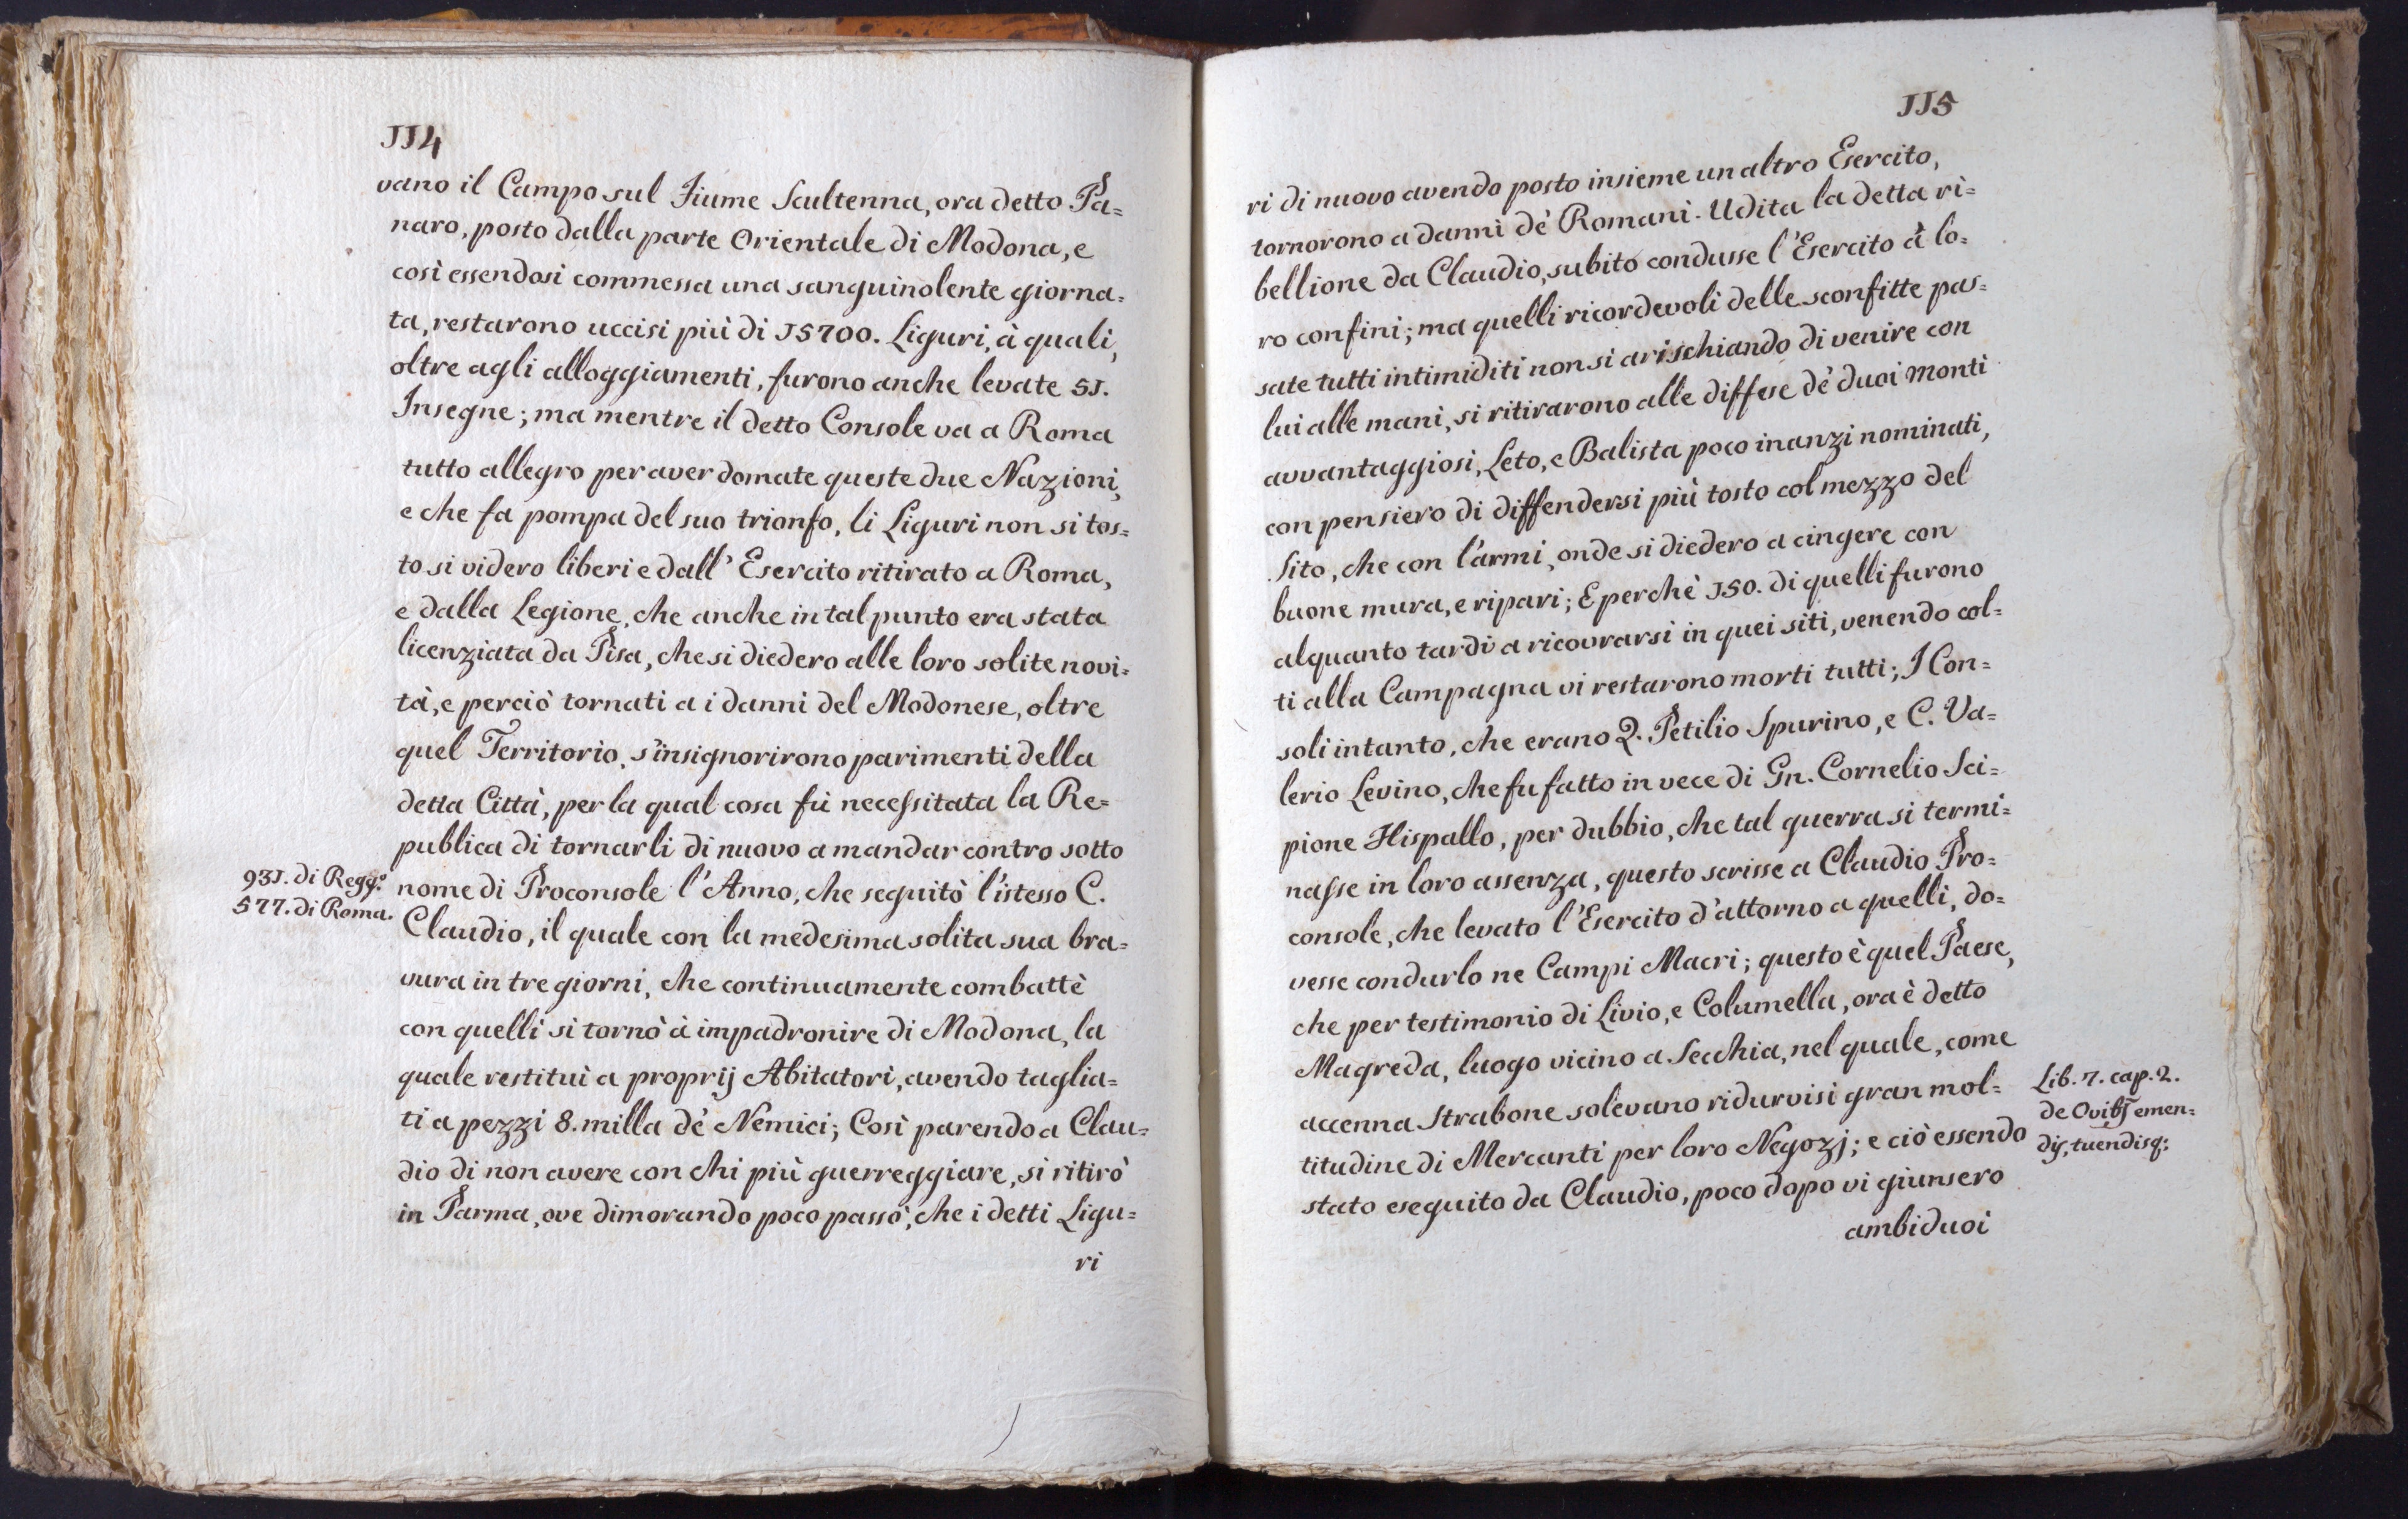 114
vano il Campo sul Fiume Scultenna, ora detto Pa=
naro, posto dalla parte Orientale di Modona, e
così essendosi commessa una sanguinolente giorna=
ta, restarono uccisi più di 15700. Liguri, à quali,
oltre agli alloggiamenti, furono anche levate 51.
Insegne; ma mentre il detto Console va a Roma
tutto allegro per aver domate queste due Nazioni,
e che fa pompa del suo trionfo, li Liguri non si tos=
to si videro liberi e dall' Esercito ritirato a Roma,
e dalla Legione, che anche in tal punto era stata
licenziata da Pisa, che si diedero alle loro solite novi=
tà, e perciò tornati a i danni del Modonese, oltre
quel Territorio, s'insignorirono parimenti della
detta Città, per la qual cosa fù necessitata la Re=
publica di tornarli di nuovo a mandar contro sotto
931. di Regg.º
577. di Roma.
nome di Proconsole l'Anno, che seguitò l'istesso C.
Claudio, il quale con la medesima solita sua bra=
vura in tre giorni, che continuamente combattè
con quelli si tornò à impadronire di Modona, la
quale restituì a proprij Abitatori, avendo taglia=
ti a pezzi 8. milla dè Nemici; Così parendo a Clau=
dio di non avere con chi più guerreggiare, si ritirò
in Parma, ove dimorando poco passò, che i detti Ligu=
ri
115
ri di nuovo avendo posto insieme un altro Esercito,
tornorono a danni dè Romani. Udita la detta ri=
bellione da Claudio, subito condusse l'Esercito à lo=
ro confini; ma quelli ricordevoli delle sconfitte pas=
sate tutti intimiditi non si arischiando di venire con
lui alle mani, si ritirarono alle diffese dè duoi monti
avvantaggiosi, Leto, e Balista poco inanzi nominati,
con pensiero di diffendersi più tosto col mezzo del
sito, che con l'armi, onde si diedero a cingere con
buone mura, e ripari; E perchè 150. di quelli furono
alquanto tardi a ricovrarsi in quei siti, venendo col=
ti alla Campagna vi restarono morti tutti; I Con=
soli intanto, che erano Q. Petilio Spurino, e C. Va=
lerio Levino, che fu fatto in vece di Gn. Cornelio Sci=
pione Hispallo, per dubbio, che tal guerra si termi=
nasse in loro assenza, questo scrisse a Claudio Pro=
console, che levato l'Esercito d'attorno a quelli, do=
vesse condurlo ne Campi Macri; questo è quel Paese,
che per testimonio di Livio, e Columella, ora è detto
Magreda, luogo vicino a Secchia, nel quale, come
accenna Strabone solevano ridurvisi gran mol=
titudine di Mercanti per loro Negozj; e ciò essendo
stato eseguito da Claudio, poco dopo vi giunsero
ambiduoi
Lib. 7. cap. 2.
de Ovibꝯ emen=
dis, tuendisq: